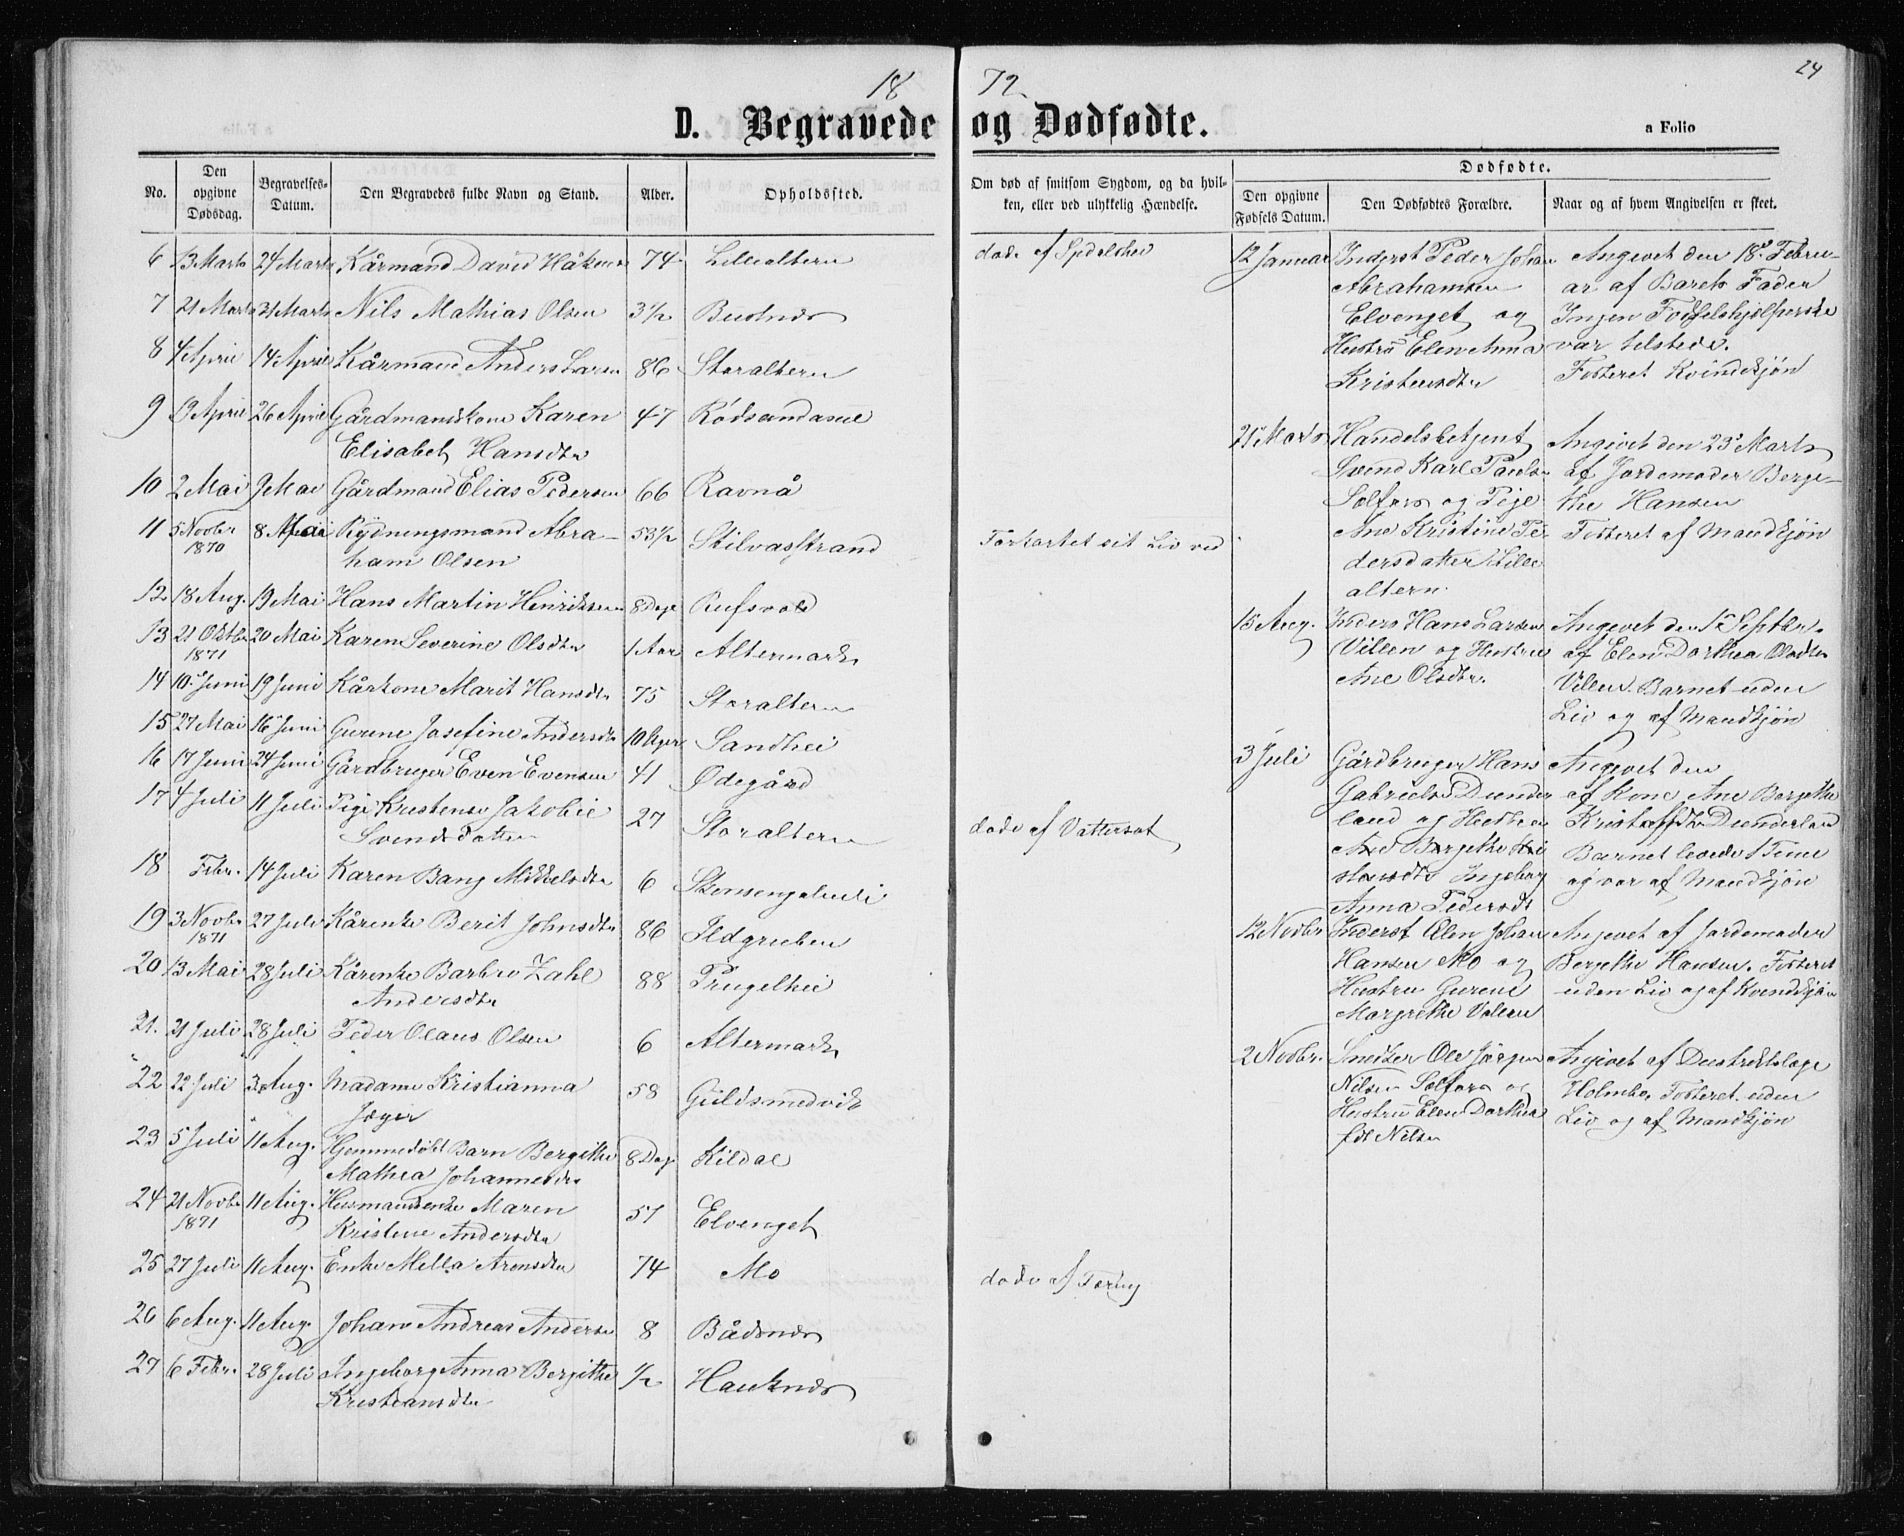 18 72.
24
D. Begravede og Dødfødte.
a Folio
No.
Den opgivne Dødsdag.
Begravelses-Datum.
Den Begravedes fulde Navn og Stand.
Alder.
Opholdssted.
Om død af smitsom Sygdom, og da hvilken, eller ved ulykkelig Hændelse.
Dødfødte.
Den opgivne Fødsels Datum.
Den Dødfødtes Forældre.
Naar og af hvem Angivelsen er skeet.
6 13 Marts 24 Marts Kårmand David Håkens 74 Lillealtern døde af Spedalshei
7 21 Marts 31 Marts Nils Mathias Olsen 3½ Bustnes
8 4 April 14 April Kårmand Anders Larsen 86 Storaltern
9 9 April 26 April Gårdmandskone Karen 47 Rødsandasen
Elisabet Hansdtr
10 2 Mai 9 Mai Gårdmand Elias Pedersen 66 Ravnå
11 5 Novbr 8 Mai Rydningsmand Abra- 53½ Stilvasstrand Forkortet sit Liv ved
1870 ham Olsen
12 18 Aug. 19 Mai Hans Martin Henriksen 8 Dage Rufsvold
13 21 Oktbr 20 Mai Karen Severine Olsdtr 1 Aar Altermark
1871
14 10 Juni 19 Juni Kårkone Marit Hansdtr 75 Storaltern
15 27 Mai 16 Juni Gurine Josefine Andersdtr 10 Uger Sandhei
16 17 Juni 24 Juni Gårdbruger Even Evensen 41 Ødegård
17 4 Juli 11 Juli Pige Kristense Jakobie 27 Storaltern døde af Vattersot
Svendsdatter
18 Febr. 14 Juli Karen Bang Mikkelsdtr 6
19 3 Novbr 27 Juli Kårenke Berit Johnsdtr 86 Ildgruben
1871
20 13 Mai 28 Juli Kårenke Barbro Zahl 88 Prugelhei
Andersdtr
21. 21 Juli 28 Juli Peder Olaus Olsen 6 Altermark
22 22 Juli 3 Aug. Madame Kristianna 58 Guldsmedvik
Jæger
23 5 Juli 11 Aug. Hjemmedøbt Barn Bergithe 8 Dage Kildal
Mathea Johannesdtr
24 21 Novbr 11 Aug. Husmandsenke Maren 57 Elvenget
1871 Kristine Andersdtr
25 27 Juli 11 Aug. Enke Milla Arensdtr 74 Mo døde af Tæring
26 6 Aug. 11 Aug. Johan Andreas Anders 8 Bådsnes
27 6 Febr. 28 Juli Ingeborg Anna Bergithe ½ Hauknes
Kristiansdtr
12 Januar Inderst Peder Johan Angivet den 18de Febru-
Abrahamsen ar af Barets Fader
Elvenget og Ingen Fødselshjelperske
Hustru Elen Anna var tilstede.
Kristensdtr Fosteret Kvindekjøn
21 Marts Handelsbetjent Angivet den 23de Marts
Svend Karl Pauls af Jordemoder Berge-
Selfors og Pige the Hansen
Ane Kristine Pe- Fosteret af Mandkjøn
dersdatter Lille
altern.
15 Aug. Inders Hans Larsen Angivet den 1ste Septbr.
Villen og Hustru af Elen Dorthea Olsdtr
Ane Olsdtr. Villen. Barnet uden
Liv og af Mandkjøn
3 Juli Gårdbruger Hans Angivet den
Gabriels Dunder- af Kone Ane Bergithe
land og Hustru Kristoffdtr Dunderland
Ane Bergethe Kri Barnet levede 1 Time
stansdtr Ingeborg og var af Mandkjøn
Anna Pedersdt
12 Novbr. Inderst Olen Johan Angivet af Jordemoder
Hansen Mo og Bergethe Hansen. Fosteret
Hustru Gurine uden Liv og af Kvindkjøn
Margrethe Valen
2 Novbr. Smeder Ole Jørgen Angivet af Distriktslæge
Nilsen Selfors og Holmbo. Fosteret uden
Hustru Elen Dorthea Liv og af Mandkjøn
fdt Nilsen